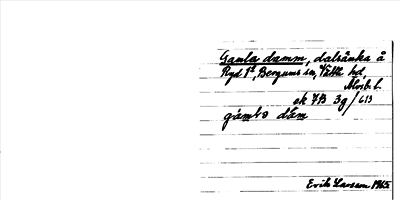 Gamla damm, dalsänka å
Ryd 1⁴, Bergums sn, Vättle hd,
Älvsb. l.
ek 7B 3g/613
gámbɘ dám
Erik Larsson 1965